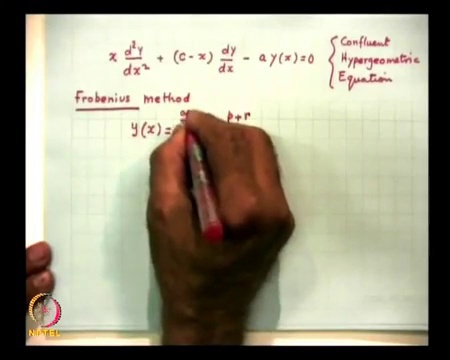 x d²y/dx² + (c-x) dy/dx - a y(x) = 0 { Confluent Hypergeometric Equation
Frobenius method
y(x) = p+r
NPTEL